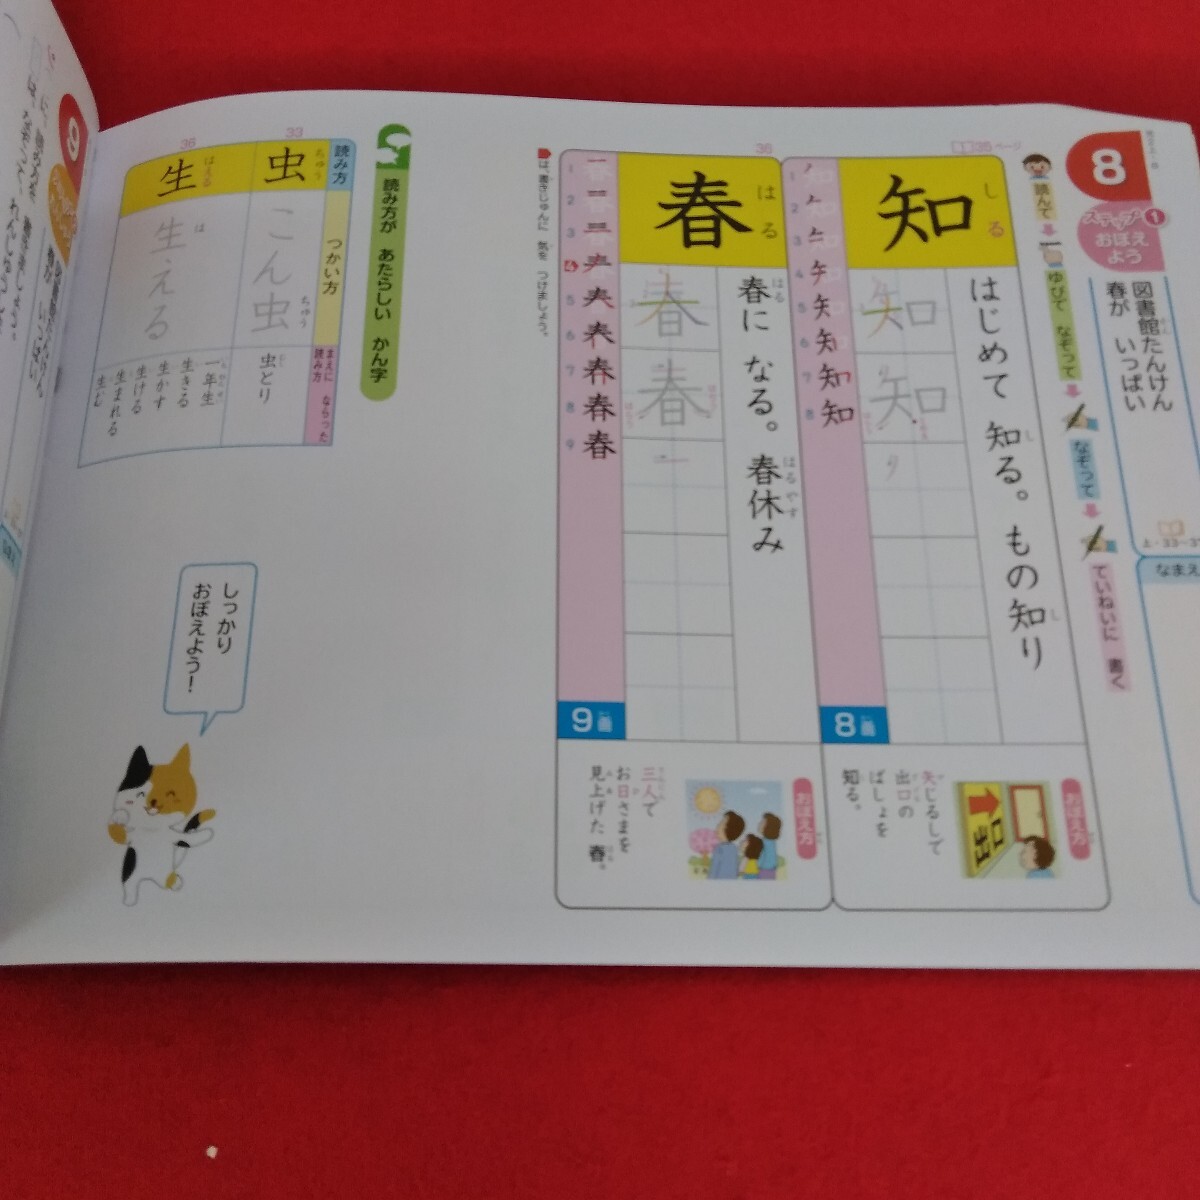 8
ステップ1
おぼえ
よう
図書館たんけん
春が いっぱい
上・33〜37
なまえ
読んで
ゆびで なぞって
なぞって
ていねいに 書く
知
しる
はじめて 知る。もの知り
知 知
1 2 3 4 5 6 7 8
8画
おぼえ方
矢じるしで
出口の
ばしょを
知る。
出口
36
春
はる
春に なる。春休み
春 春
1 2 3 4 5 6 7 8 9
9画
おぼえ方
三人で
お日さまを
見上げた 春。
は、書きじゅんに 気を つけましょう。
読み方が あたらしい かん字
読み方
つかい方
まえに ならった
読み方
33
虫
ちゅう
こん虫
虫とり
36
生
はえる
生える
一年生
生きる
生かす
生ける
生まれる
生む
しっかり
おぼえよう！
9